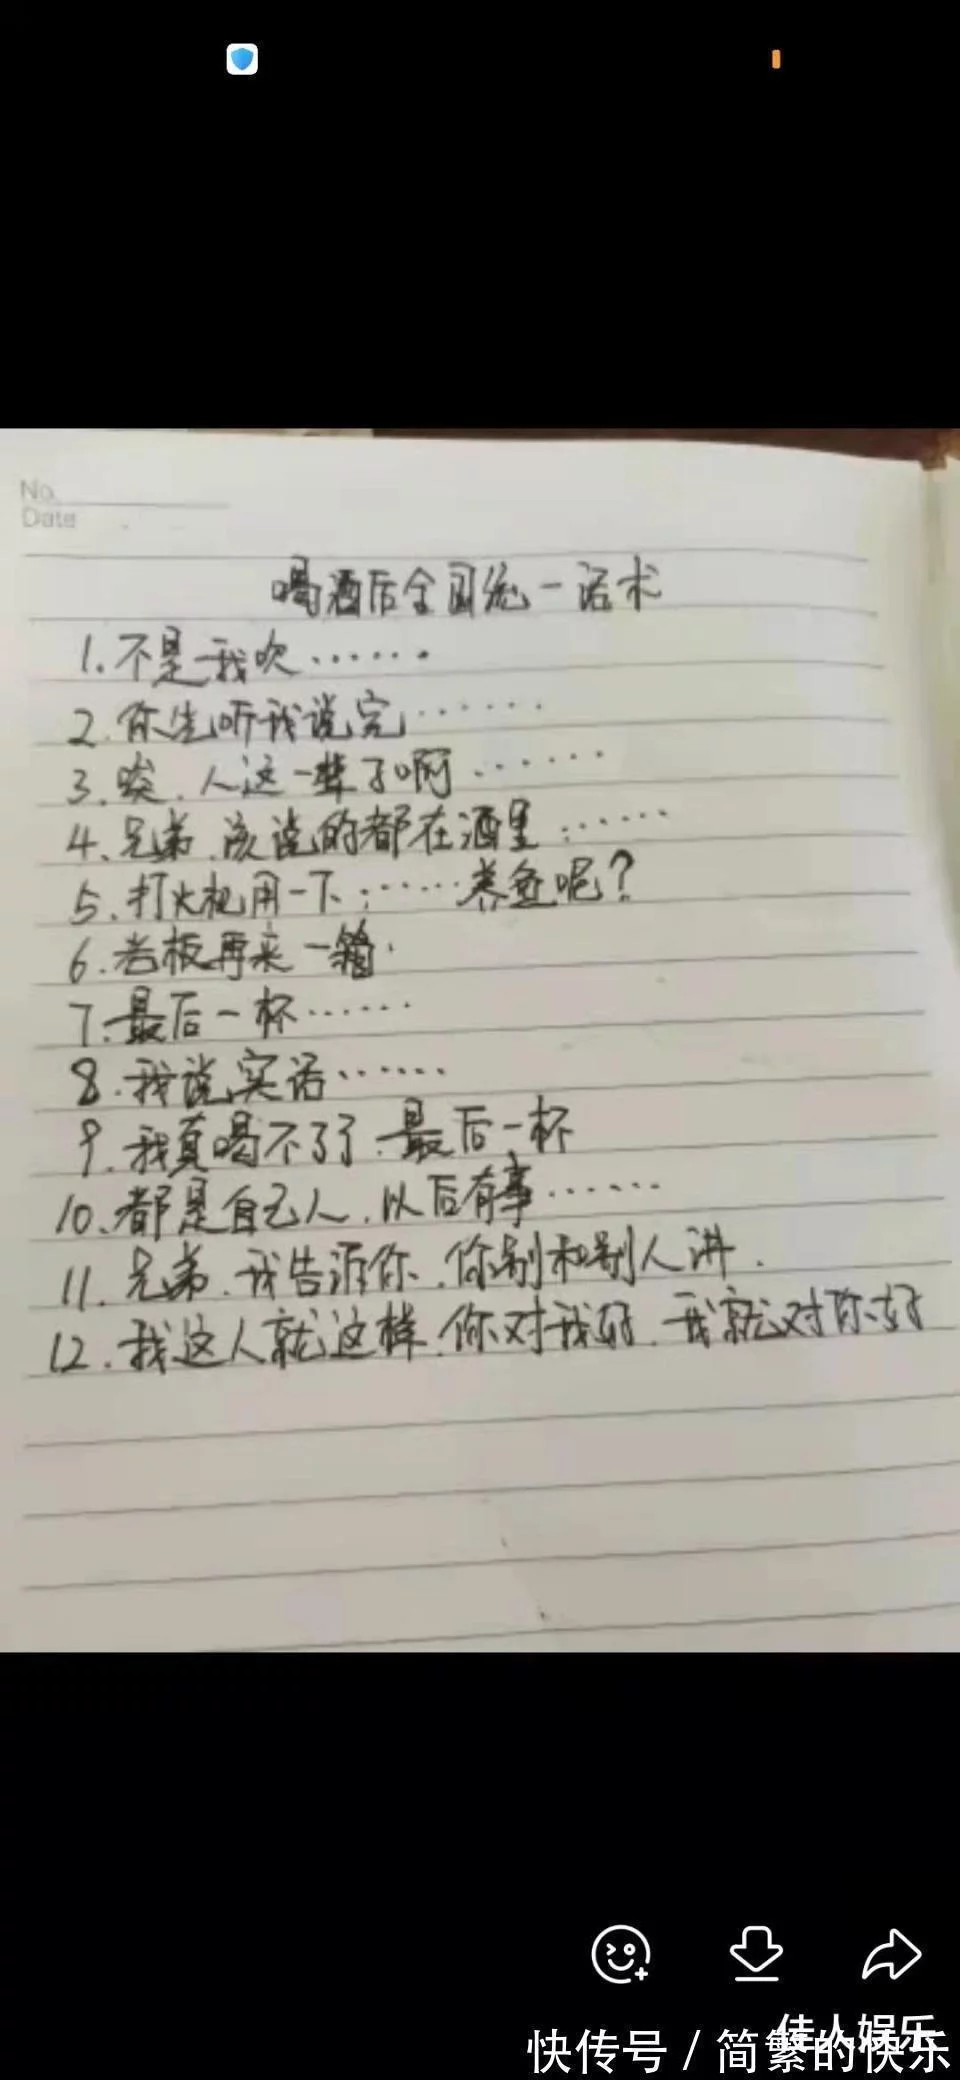 No.
Date
喝酒后全国统一话术
1.不是我吹······
2.你先听我说完······
3.唉、人这一辈子啊、······
4.兄弟、该说的都在酒里······
5.打火机用一下······养鱼呢？
6.老板再来一箱.
7.最后一杯······
8.我说实话······
9.我真喝不了了、最后一杯
10.都是自己人、以后有事······
11.兄弟、我告诉你、你别和别人讲.
12.我这人就这样、你对我好、我就对你好
佳人娱乐
快传号 / 简繁的快乐